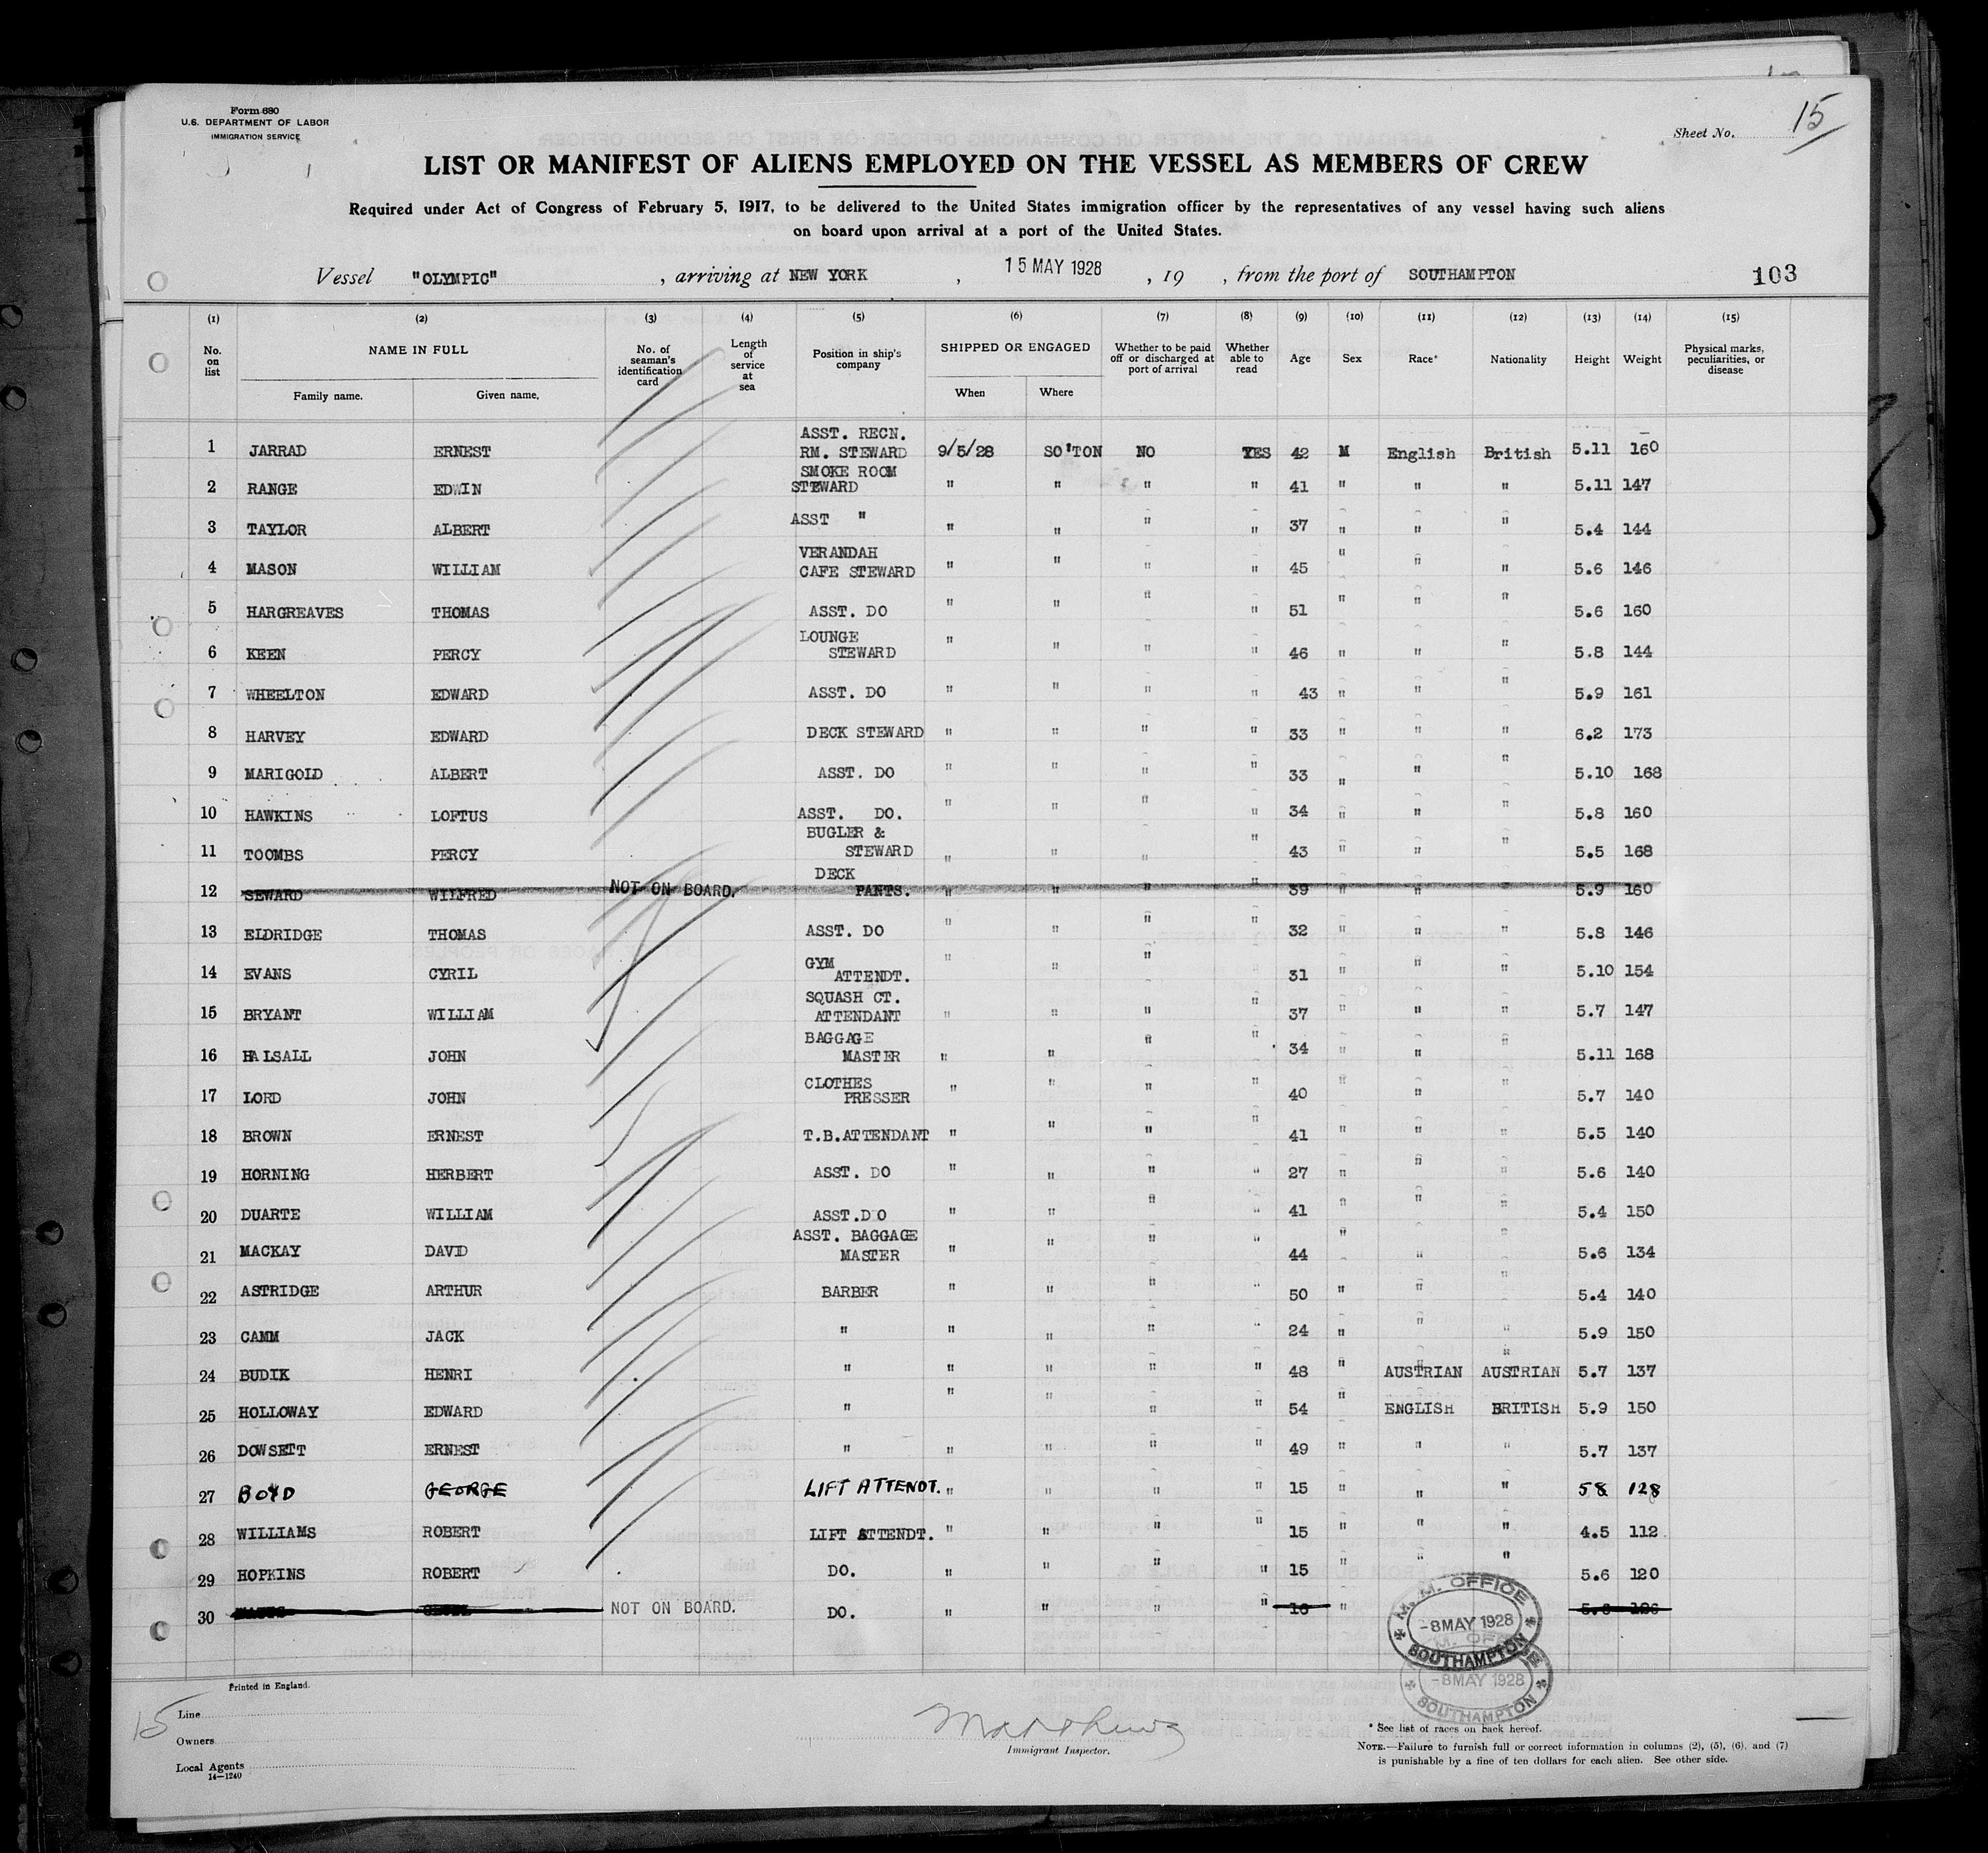 Form 680
U.S. DEPARTMENT OF LABOR
IMMIGRATION SERVICE
Sheet No. 15
LIST OR MANIFEST OF ALIENS EMPLOYED ON THE VESSEL AS MEMBERS OF CREW
Required under Act of Congress of February 5, 1917, to be delivered to the United States immigration officer by the representatives of any vessel having such aliens
on board upon arrival at a port of the United States.
Vessel "OLYMPIC" , arriving at NEW YORK , 15 MAY 1928 , 19 , from the port of SOUTHAMPTON 103
(1) (2) (3) (4) (5) (6) (7) (8) (9) (10) (11) (12) (13) (14) (15)
No. on list NAME IN FULL Family name. Given name. No. of seaman's identification card Length of service at sea Position in ship's company SHIPPED OR ENGAGED When Where Whether to be paid off or discharged at port of arrival Whether able to read Age Sex Race* Nationality Height Weight Physical marks, peculiarities, or disease
1 JARRAD ERNEST ASST. RECN. RM. STEWARD 9/5/28 SO'TON NO YES 42 M English British 5.11 160
2 RANGE EDWIN SMOKE ROOM STEWARD " " " " 41 " " " 5.11 147
3 TAYLOR ALBERT ASST " " " " " 37 " " " 5.4 144
4 MASON WILLIAM VERANDAH CAFE STEWARD " " " " 45 " " " 5.6 146
5 HARGREAVES THOMAS ASST. DO " " " " 51 " " " 5.6 160
6 KEEN PERCY LOUNGE STEWARD " " " " 46 " " " 5.8 144
7 WHEELTON EDWARD ASST. DO " " " " 43 " " " 5.9 161
8 HARVEY EDWARD DECK STEWARD " " " " 33 " " " 6.2 173
9 MARIGOLD ALBERT ASST. DO " " " " 33 " " " 5.10 168
10 HAWKINS LOFTUS ASST. DO. " " " " 34 " " " 5.8 160
11 TOOMBS PERCY BUGLER & STEWARD " " " " 43 " " " 5.5 168
12 SEWARD WILFRED NOT ON BOARD. DECK PANTS. " " " " 39 " " " 5.9 160
13 ELDRIDGE THOMAS ASST. DO " " " " 32 " " " 5.8 146
14 EVANS CYRIL GYM ATTENDT. " " " 31 " " " 5.10 154
15 BRYANT WILLIAM SQUASH CT. ATTENDANT " " " " 37 " " " 5.7 147
16 HALSALL JOHN BAGGAGE MASTER " " " " 34 " " " 5.11 168
17 LORD JOHN CLOTHES PRESSER " " " " 40 " " " 5.7 140
18 BROWN ERNEST T.B.ATTENDANT " " " " 41 " " " 5.5 140
19 HORNING HERBERT ASST. DO " " " " 27 " " " 5.6 140
20 DUARTE WILLIAM ASST.DO " " " " 41 " " " 5.4 150
21 MACKAY DAVID ASST. BAGGAGE MASTER " " " " 44 " " " 5.6 134
22 ASTRIDGE ARTHUR BARBER " " " " 50 " " " 5.4 140
23 CAMM JACK " " " " " 24 " " " 5.9 150
24 BUDIK HENRI " " " " " 48 " AUSTRIAN AUSTRIAN 5.7 137
25 HOLLOWAY EDWARD " " " " " 54 " ENGLISH BRITISH 5.9 150
26 DOWSETT ERNEST " " " " " 49 " " " 5.7 137
27 BOYD GEORGE LIFT ATTENDT. " " " " 15 " " " 58 128
28 WILLIAMS ROBERT LIFT ATTENDT. " " " " 15 " " " 4.5 112
29 HOPKINS ROBERT DO. " " " " 15 " " " 5.6 120
30 NOT ON BOARD. DO. " " " " 16 "
M.M. OFFICE
-8 MAY 1928
SOUTHAMPTON
-8 MAY 1928
SOUTHAMPTON
Printed in England.
15
Line
Owners
Local Agents
14-1240
Matthews
Immigrant Inspector.
* See list of races on back hereof.
NOTE.—Failure to furnish full or correct information in columns (2), (5), (6), and (7)
is punishable by a fine of ten dollars for each alien. See other side.